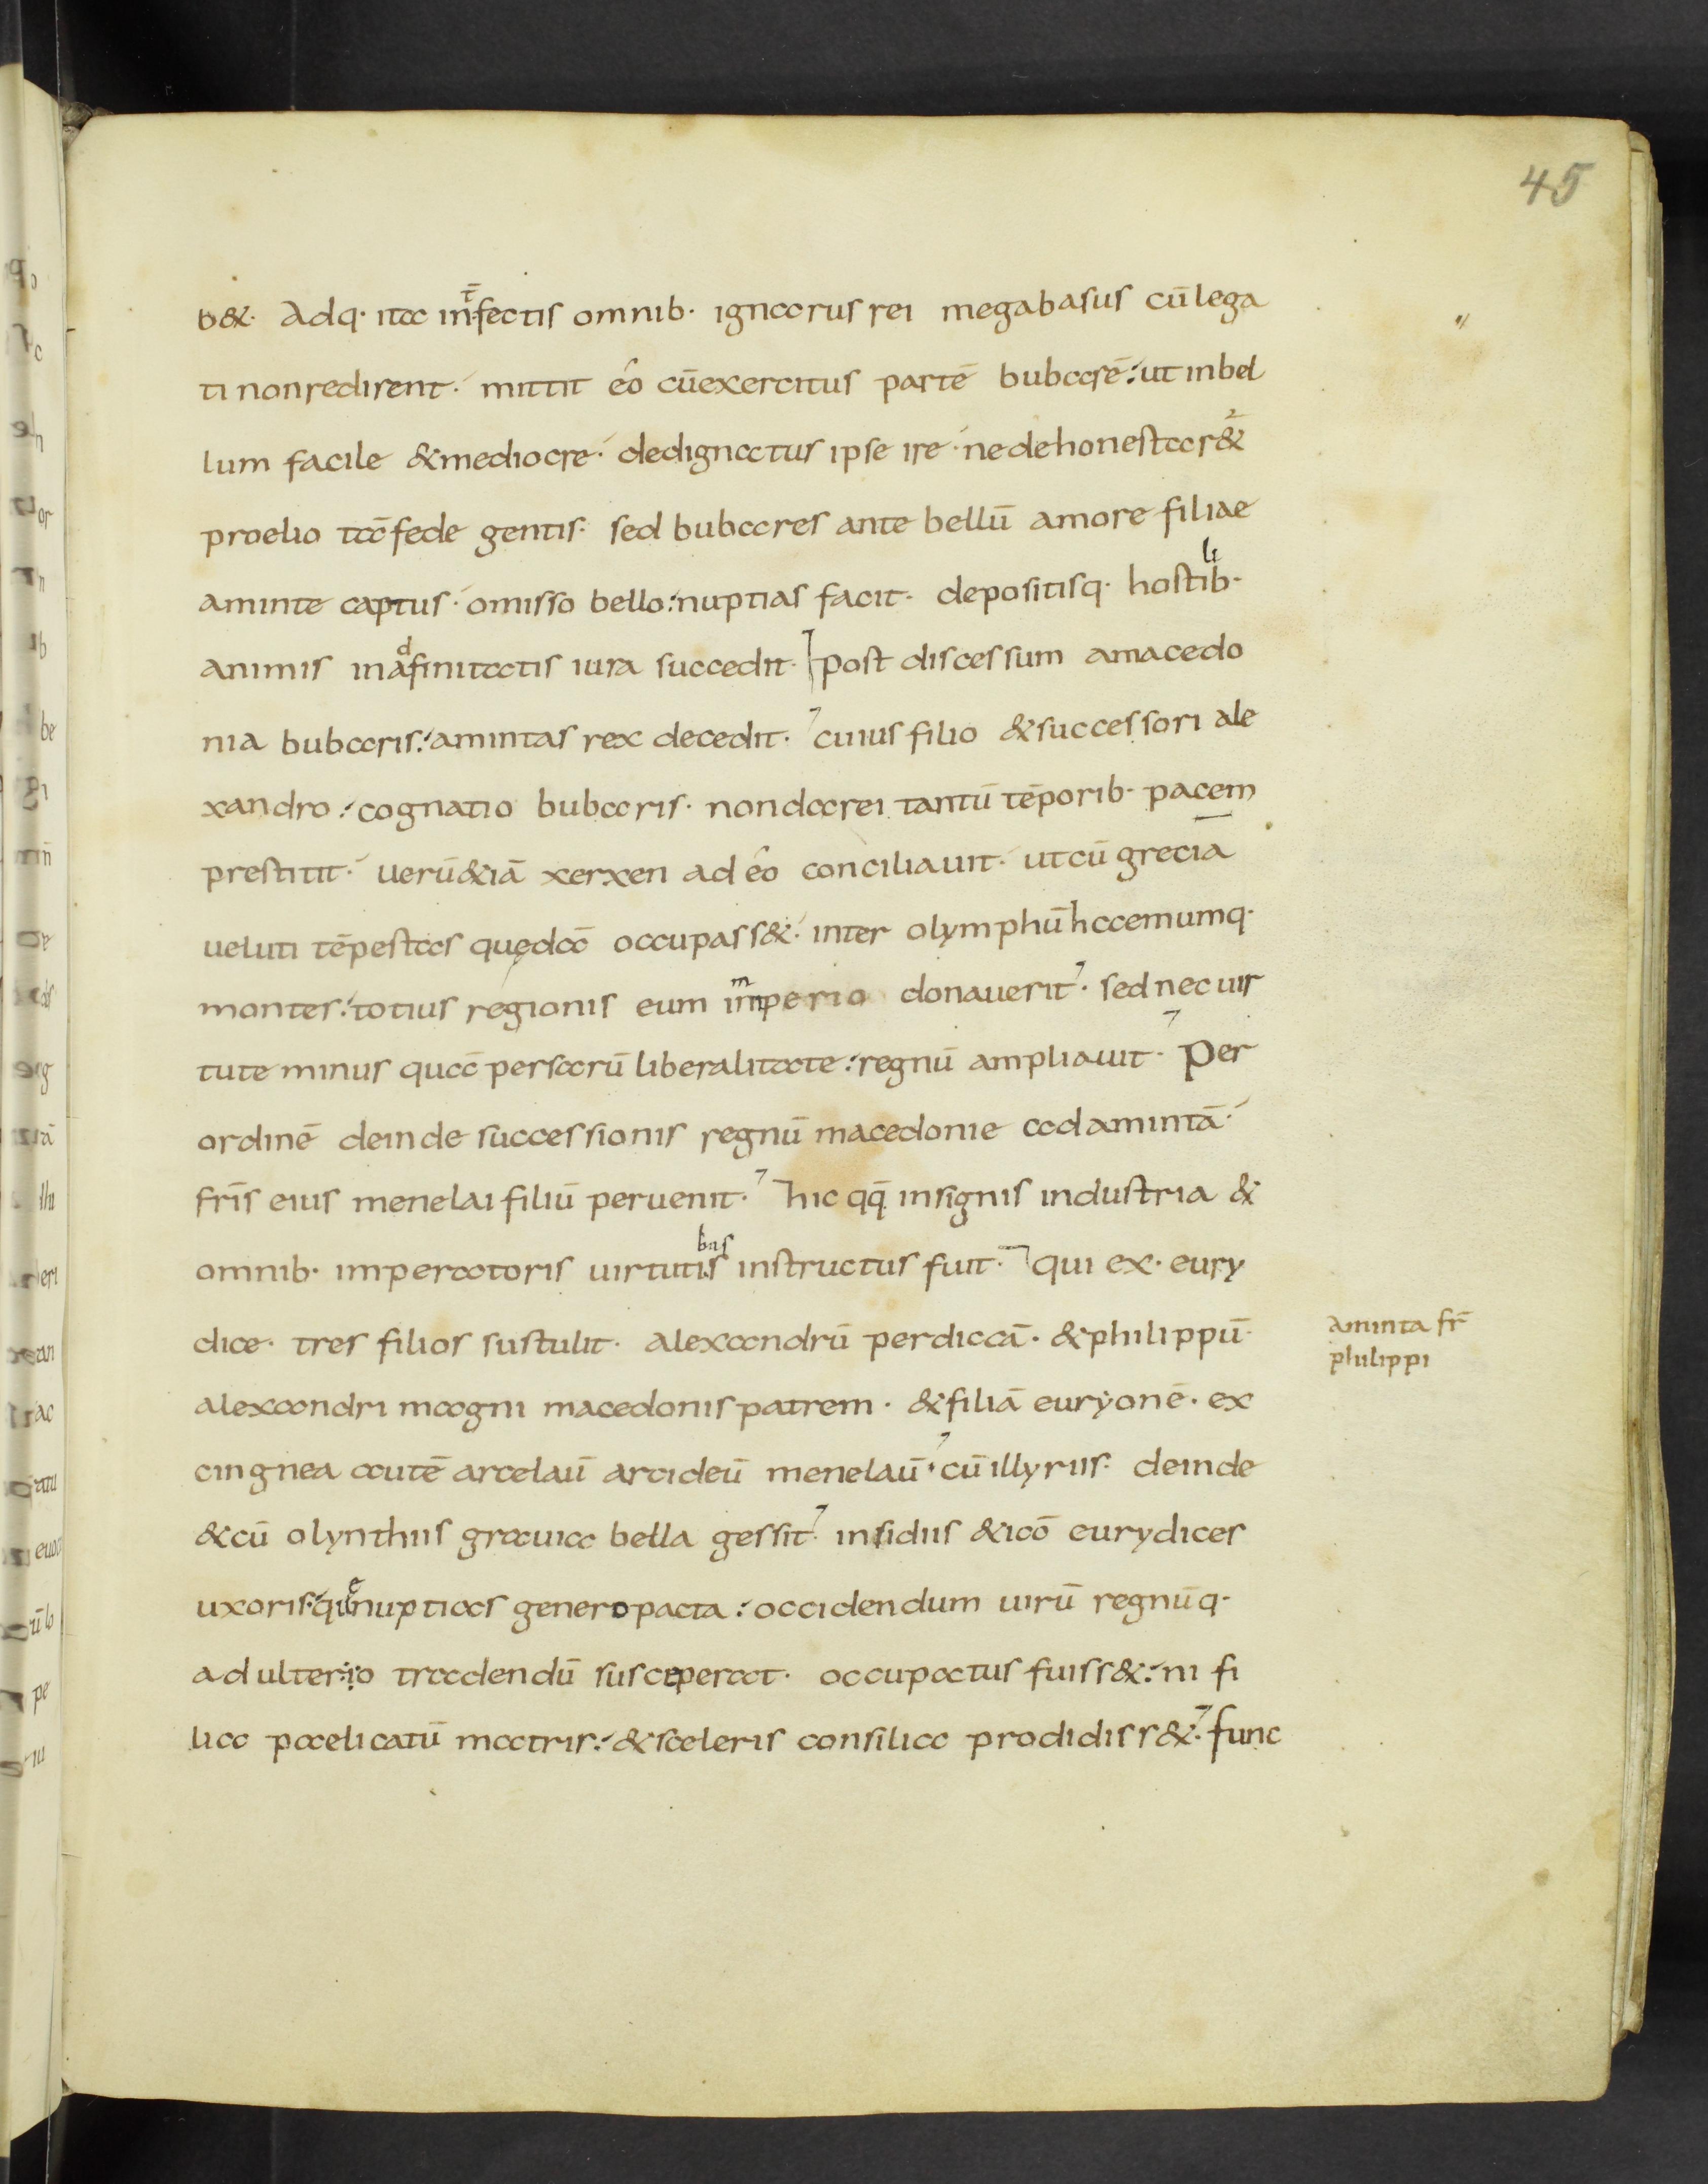 45
b&. Adq· ita int̄fectis omnib· ignarus rei megabasus cū lega
ti non redirent· mittit eo cū exercitus partē bubarē: ut in bel
lum facile & mediocre· dedignatus ipse ire· ne dehonestar&
proelio tā fede gentis· sed bubares ante bellū amore filiae
aminte captus· omisso bello: nuptias facit· depositisq· hostilib·
animis in adfinitatis iura succedit· post discessum a macedo
nia bubaris: amintas rex decedit· cuius filio & successori ale
xandro: cognatio bubaris· non darei tantū tēporib· pacem
prestitit· uerū &iā xerxen ad eo conciliauit· ut cū grecia
ueluti tēpestas quędā occupass&· inter olymphū hacemumq·
montes: totius regionis eum imperio donauerit· sed nec uir
tute minus quā persarū liberalitate: regnū ampliauit· Per
ordinē deinde successionis regnū macedonie ad amintā·
fr̄is eius menelai filiū peruenit· hic qq̄ insignis industria &
omnib· imperatoris uirtutibus instructus fuit· qui ex· eury
dice· tres filios sustulit· alexandrū perdiccā· & philippū·
Aminta fr̄
philippi
alexandri magni macedonis patrem· & filiā euryonē· ex
cingnea autē arcelaū arcideū menelaū· cū illyriis· deinde
& cū olynthiis grauia bella gessit· insidiis &iā eurydices
uxoris· que nuptias genero pacta: occidendum uirū regnūq·
adulterio tradendū susceperat· occupatus fuiss&: ni fi
lia paelicatū matris: & sceleris consilia prodidiss&· func